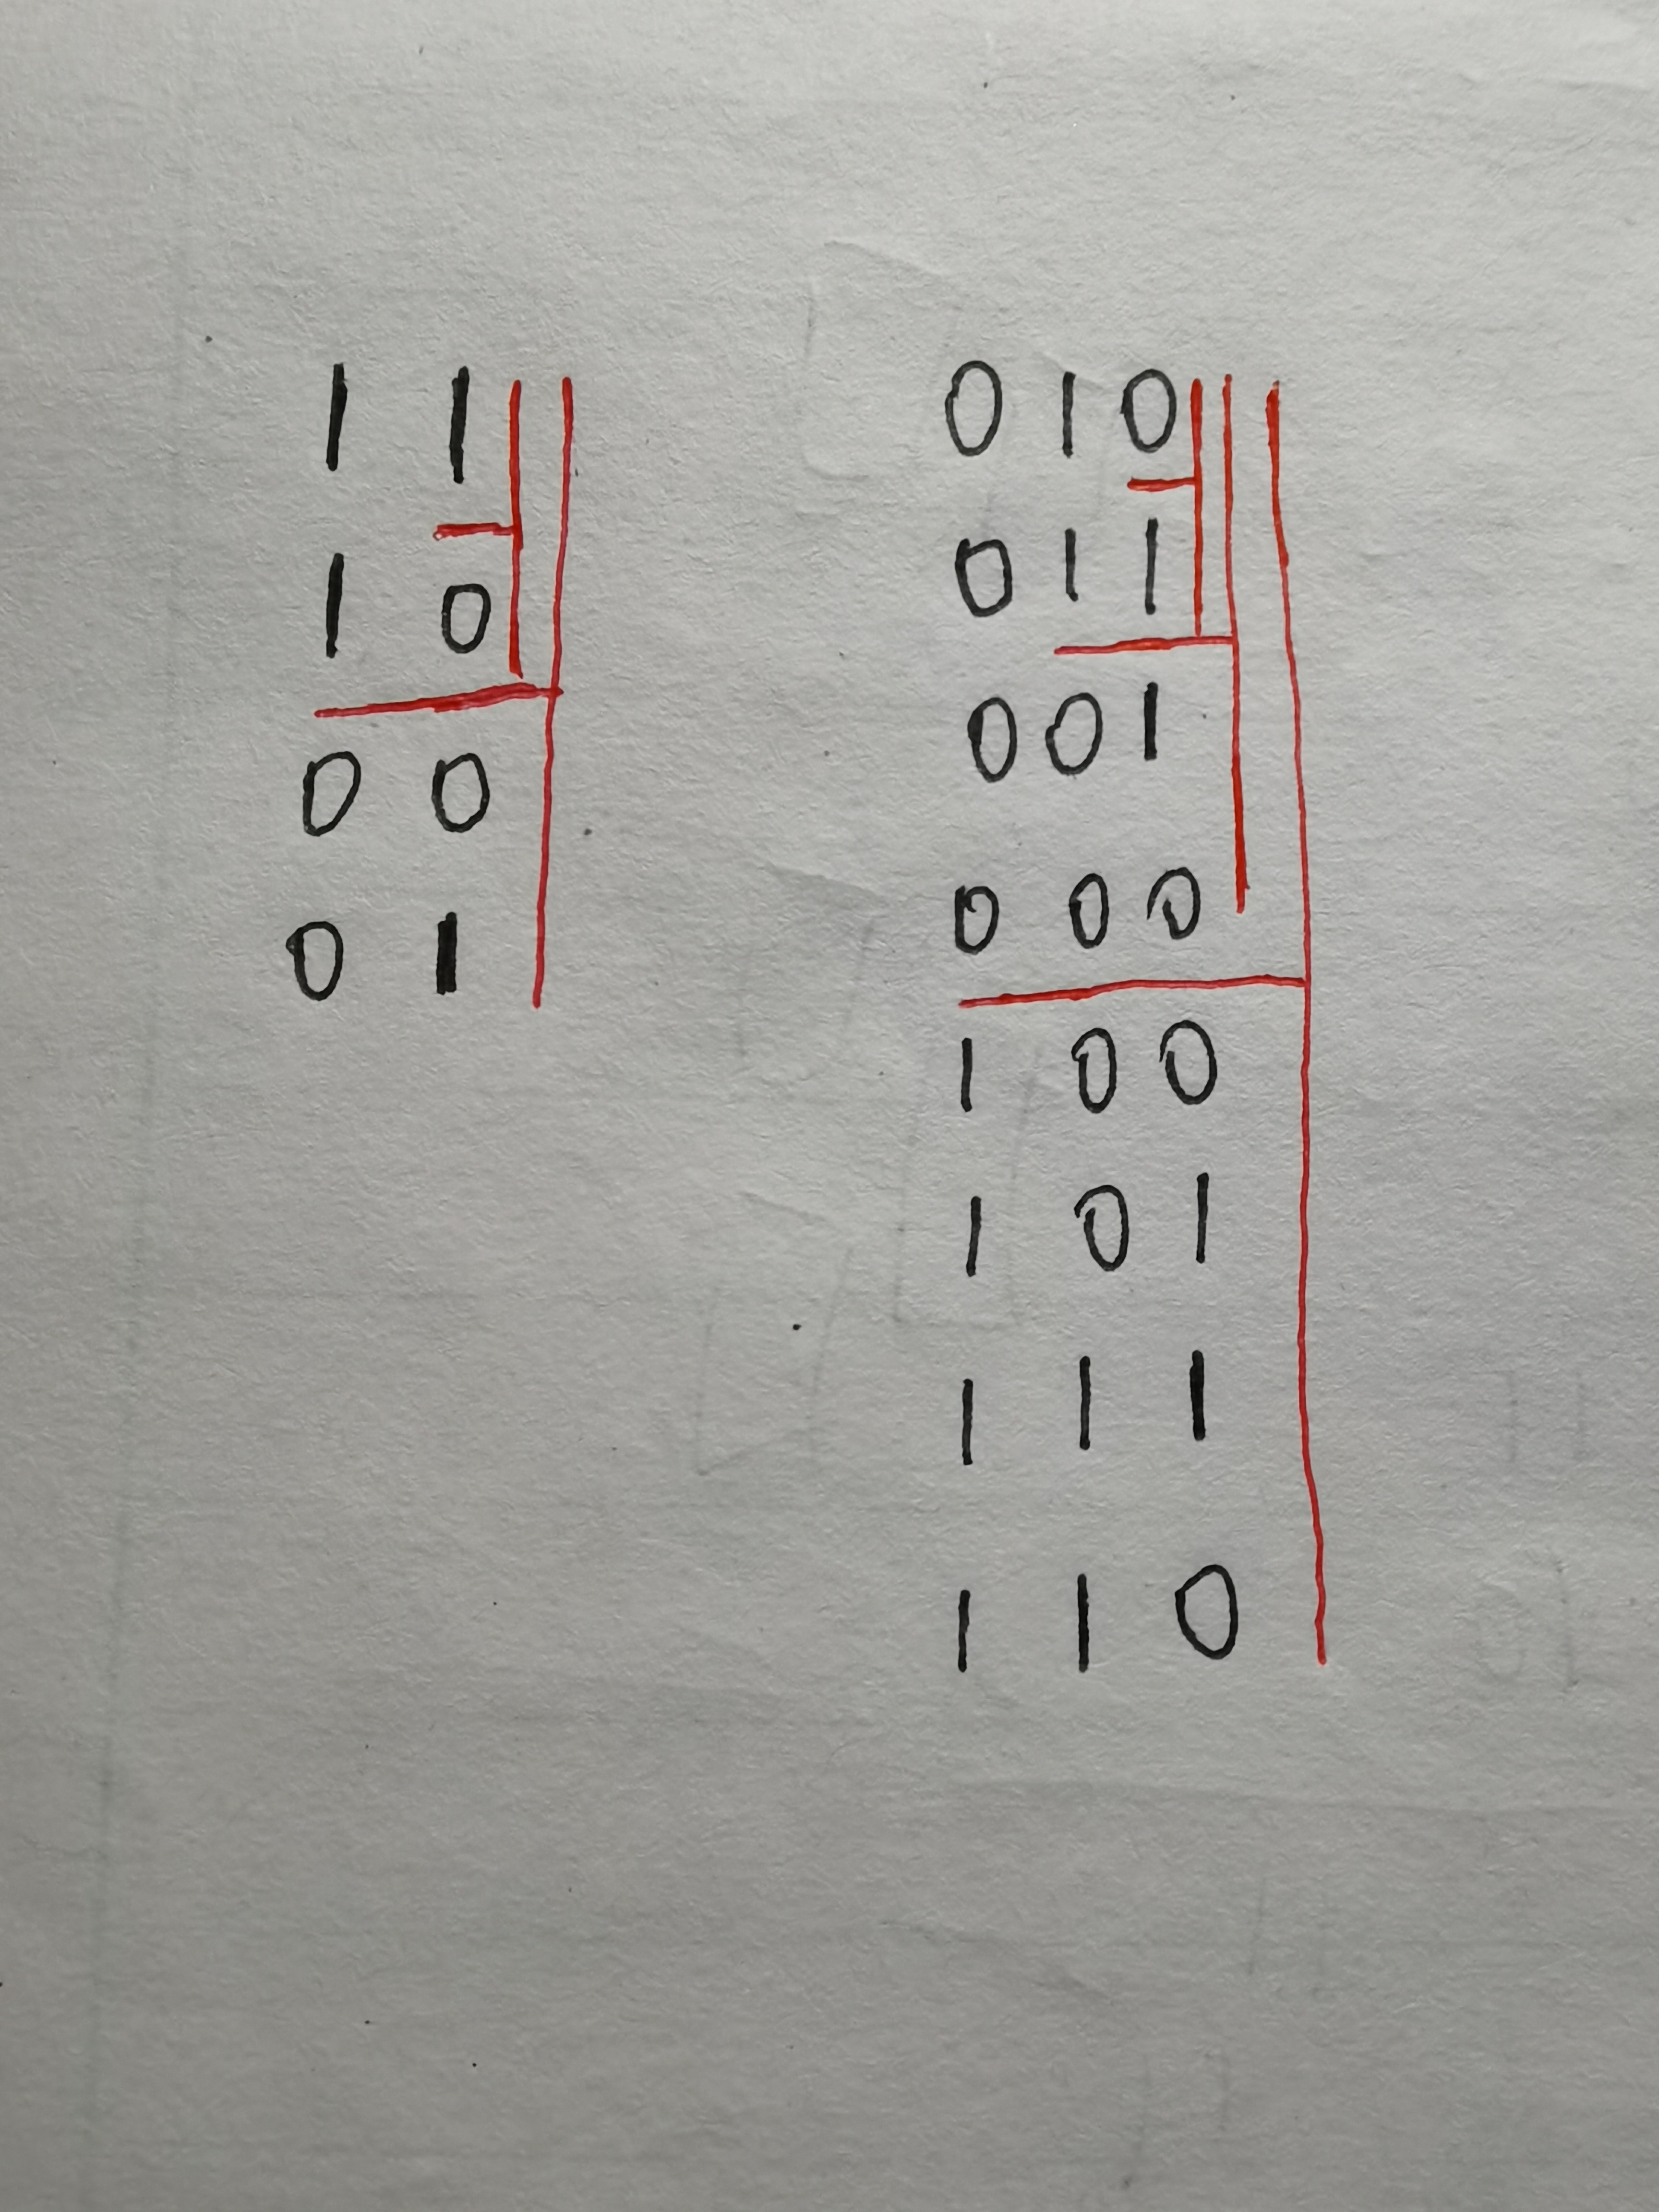 1 1
1 0
0 0
0 1
0 1 0
0 1 1
0 0 1
0 0 0
1 0 0
1 0 1
1 1 1
1 1 0